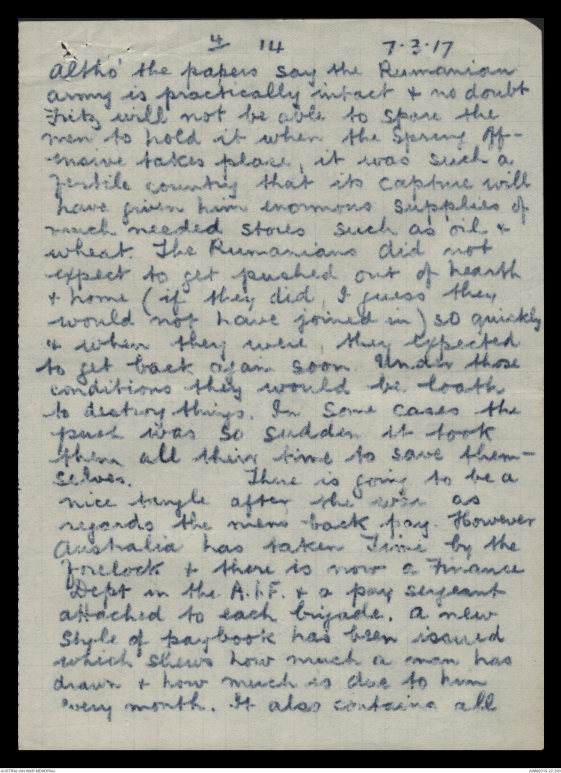 4 14 7.3.17
Altho' the papers say the Rumanian
army is practically intact & no doubt
Fritz will not be able to spare the
men to hold it when the Spring Off-
ensive takes place, it was such a
fertile country that its capture will
have given him enormous supplies of
much needed stores such as oil &
wheat. The Rumanians did not
expect to get pushed out of hearth
& home (if they did, I guess they
would not have joined in) so quickly
& when they were, they expected
to get back again soon. Under those
conditions they would be loath
to destroy things. In some cases the
push was so sudden it took
them all their time to save them-
selves. There is going to be a
nice tangle after the war as
regards the mens back pay. However
Australia has taken Time by the
Forelock & there is now a Finance
Dept in the A.I.F. & a pay sergeant
attached to each brigade. A new
style of paybook has been issued
which shews how much a man has
drawn & how much is due to him
every month. It also contains all
AUSTRALIAN WAR MEMORIAL